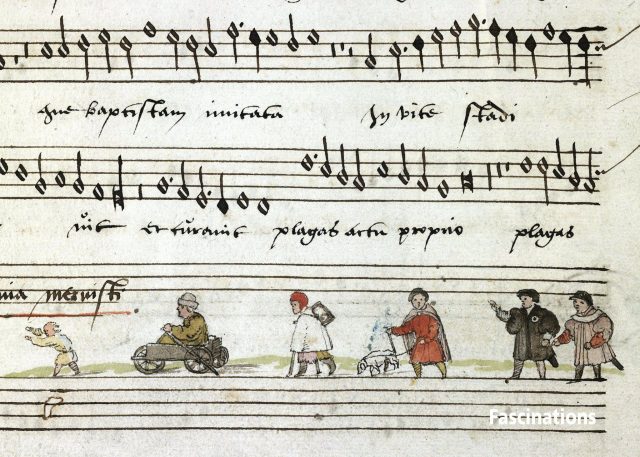 que baptistam imitata In vite stadi
uit et curavit plagas actu proprio plagas
meruisti
Fascinations